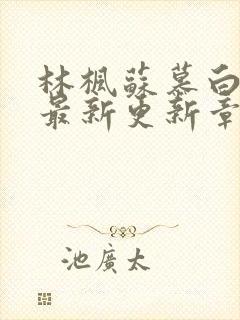 林楓蘇慕白
最新更新章
池廣太